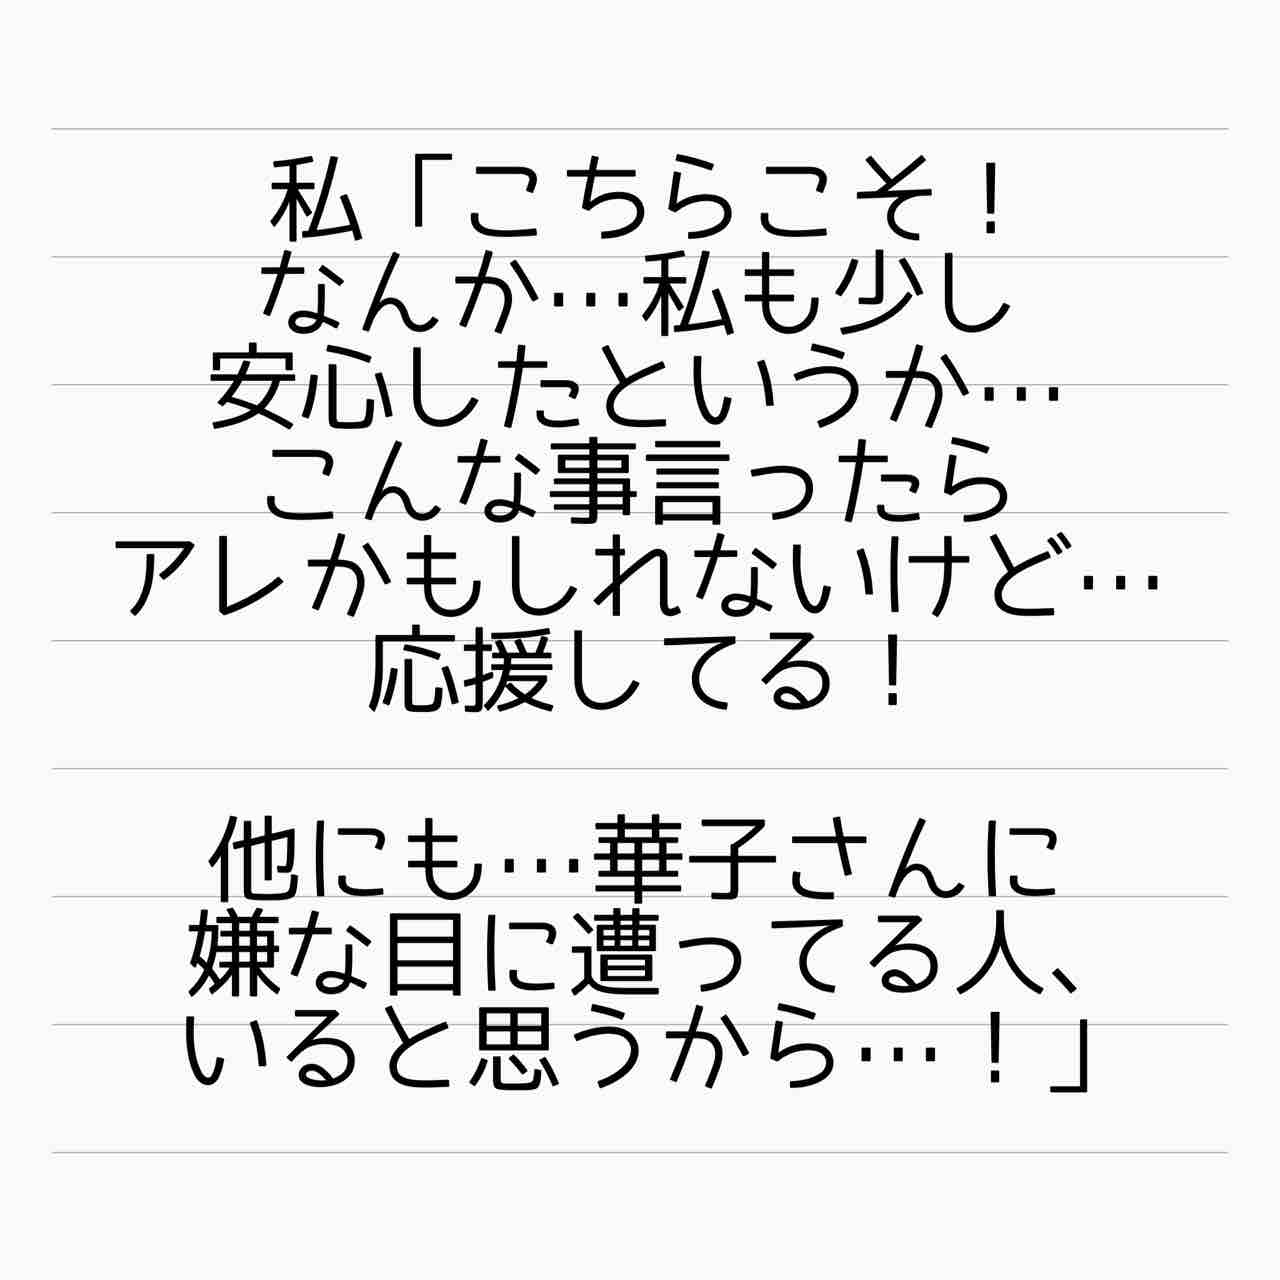 私「こちらこそ！
なんか…私も少し
安心したというか…
こんな事言ったら
アレかもしれないけど…
応援してる！
他にも…華子さんに
嫌な目に遭ってる人、
いると思うから…！」